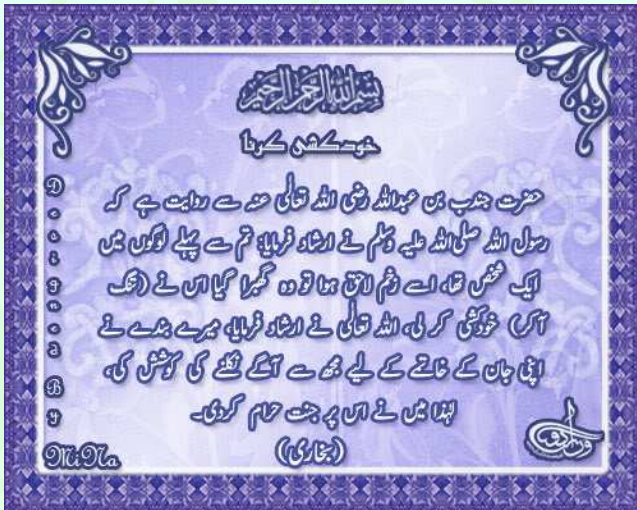 بسم الله الرحمن الرحيم
خودکشی کرنا
حضرت جندب بن عبداللہ رضی اللہ تعالٰی عنہ سے روایت ہے کہ
رسول اللہ صلی اللہ علیہ وسلم نے ارشاد فرمایا: تم سے پہلے لوگوں میں
ایک شخص تھا، اسے زخم لاحق ہوا تو وہ گھبرا گیا اس نے (تنگ
آکر) خودکشی کر لی، اللہ تعالٰی نے ارشاد فرمایا، میرے بندے نے
اپنی جان کے خاتمے کے لیے مجھ سے آگے نکلنے کی کوشش کی،
لہٰذا میں نے اس پر جنت حرام کردی۔
(بخاری)
Designed By
MiNa